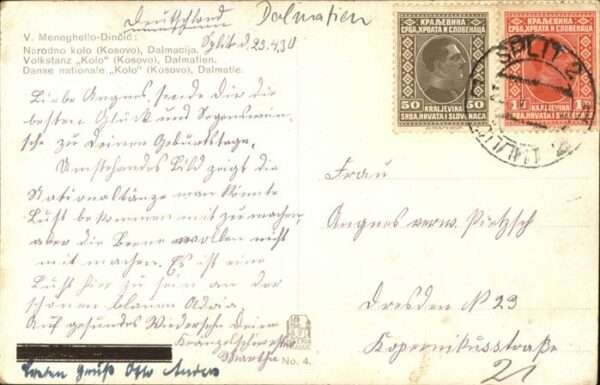 Deutschland
Dalmatien
V. Meneghello-Dinčić:
Narodno kolo (Kosovo), Dalmacija.
Volkstanz „Kolo“ (Kosovo), Dalmatien.
Danse nationale „Kolo“ (Kosovo), Dalmatie.
Split d. 23.4.30
Liebe Angnes, sende Dir die
besten Glück und Segenswün-
sche zu Deinem Geburtstage,
Umstehendes Bild zeigt die
Nationaltänze man könnte
Lust bekommen mit zu machen,
aber die Beine wollen nicht
mit machen. Es ist eine
Lust hier zu sein an der
schönen blauen Adria
Auf gesundes Wiedersehn Deine
Martha
Gruß Otto
No. 4.
КРАЉЕВИНА
СРБА, ХРВАТА И СЛОВЕНАЦА
50 50
KRALJEVINA
SRBA, HRVATA I SLOVENACA
КРАЉЕВИНА
СРБА, ХРВАТА И СЛОВЕНАЦА
1
KRALJEVINA
SRBA, HRVATA I SLOVENACA
SPLIT 2
Frau
Angnes verw. Pietzsch
Dresden N 23
Kopernikusstraße
21